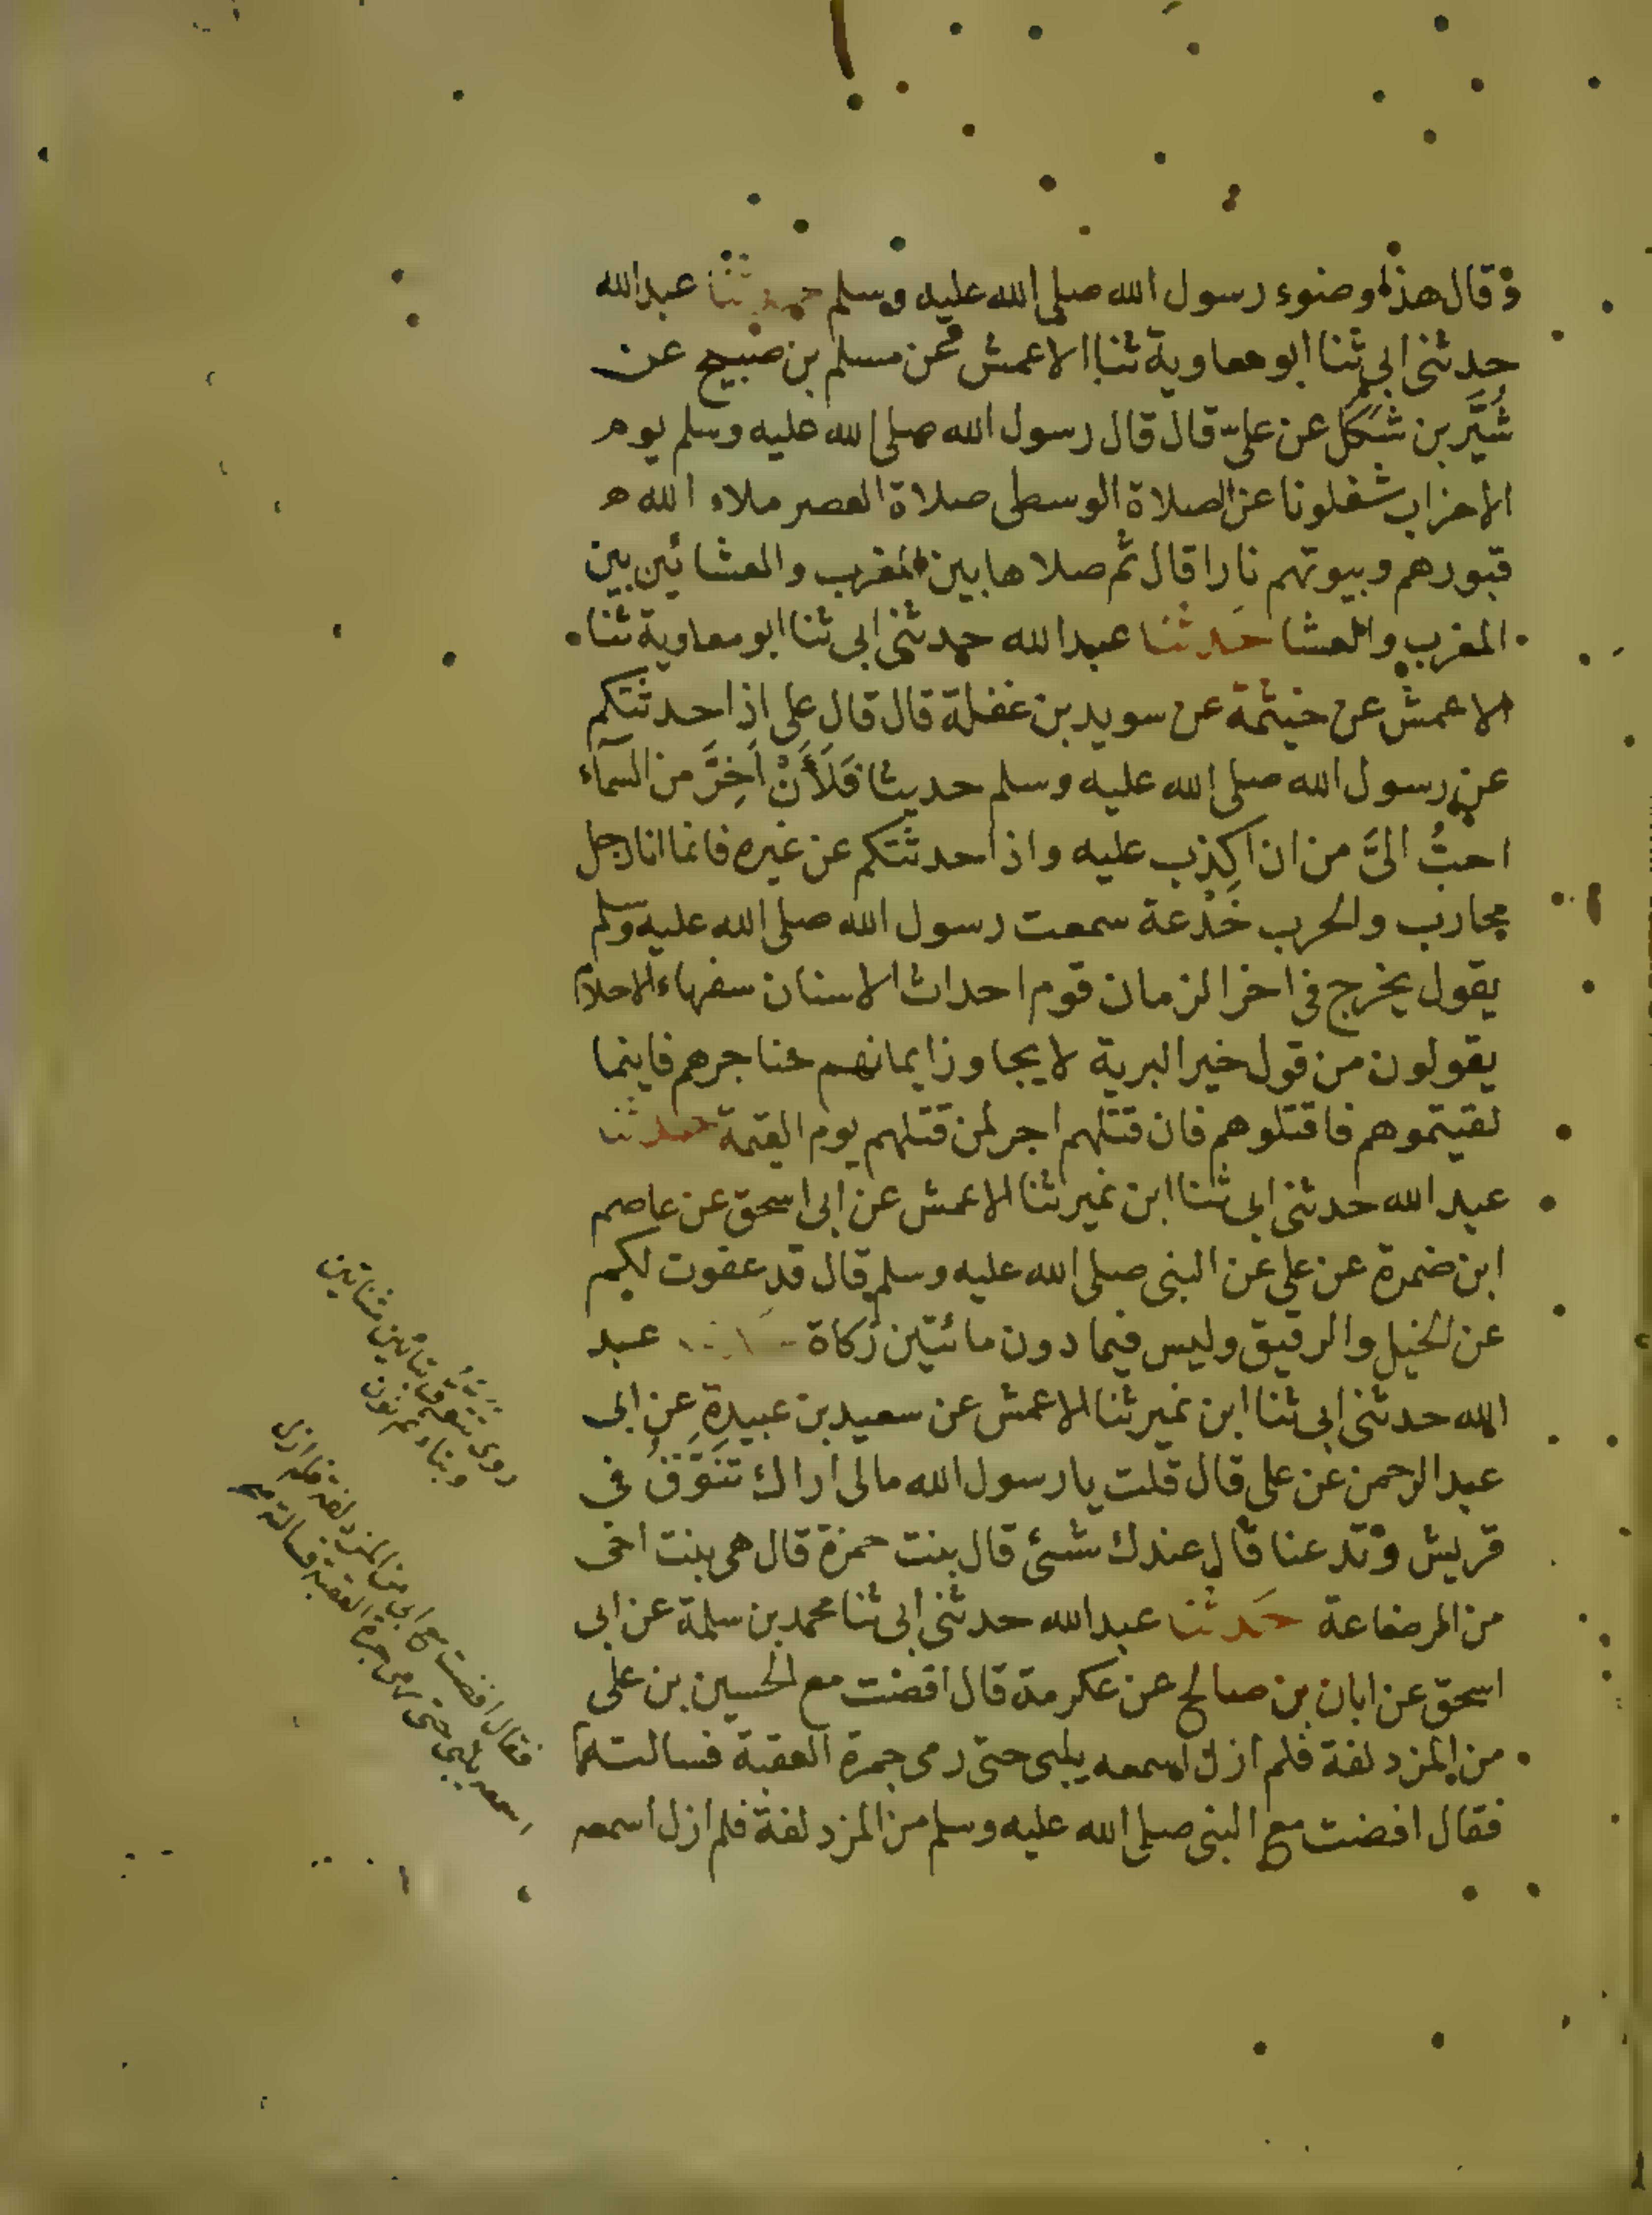 وقال هذا وضوء رسول الله صلى الله عليه وسلم حدثنا عبدالله
حدثني ابي ثنا ابو معاوية ثنا الاعمش عن مسلم بن صبيح عن
شُتَيَّر بن شَكَل عن علي قال قال رسول الله صلى الله عليه وسلم يوم
الاحزاب شغلونا عن الصلاة الوسطى صلاة العصر ملاء الله
قبورهم وبيوتهم نارا قال ثم صلاها بين المغرب والعشائين بين
المغرب والعشا حَدثنا عبدالله حدثني ابي ثنا ابو معاوية ثنا
الاعمش عن خيثمة عن سويد بن غفلة قال قال علي اذا حدثتكم
عن رسول الله صلى الله عليه وسلم حديثا فَلَأَنْ اَخِرَّ من السمآء
احبُّ اليَّ من ان اكذِب عليه واذا حدثتكم عن غيره فانما انا رجل
محارب والحرب خَدْعة سمعت رسول الله صلى الله عليه وسلم
يقول يخرج في اخر الزمان قوم احداث الاسنان سفهاء الاحلام
يقولون من قول خير البرية لا يجاوز ايمانهم حناجرهم فاينما
لقيتموهم فاقتلوهم فان قتلهم اجر لمن قتلهم يوم القيمة حدثنا
عبد الله حدثني ابي ثنا ابن نمير ثنا الاعمش عن ابي اسحق عن عاصم
ابن ضمرة عن علي عن النبي صلى الله عليه وسلم قال قد عفوت لكم
عن الخيل والرقيق وليس فيما دون مائتين زكاة عبد
الله حدثني ابي ثنا ابن نمير ثنا الاعمش عن سعيد بن عبيدةِ عن ابي
عبد الرحمن عن علي قال قلت يا رسول الله مالي اراك تَنَوَّقُ في
قريش وتدعنا قال عندك شئ قال بنت حمزة قال هي بنت اخي
من الرضاعة حَدثنا عبدالله حدثني ابي ثنا محمد بن سلمة عن ابي
اسحق عن ابان بن صالح عن عكرمة قال افضت مع الحسين بن علي
من المزدلفة فلم ازل اسمعه يلبي حتى رمى جمرة العقبة فسالته
فقال افضت مع النبي صلى الله عليه وسلم من المزدلفة فلم ازل اسمعه
روي تتوق بتائين مثناتين
وبتاء ثم نون
فقال افضت مع ابي من المزدلفة فلم ازل
اسمعه يلبي حتى رمى جمرة العقبة فسالته